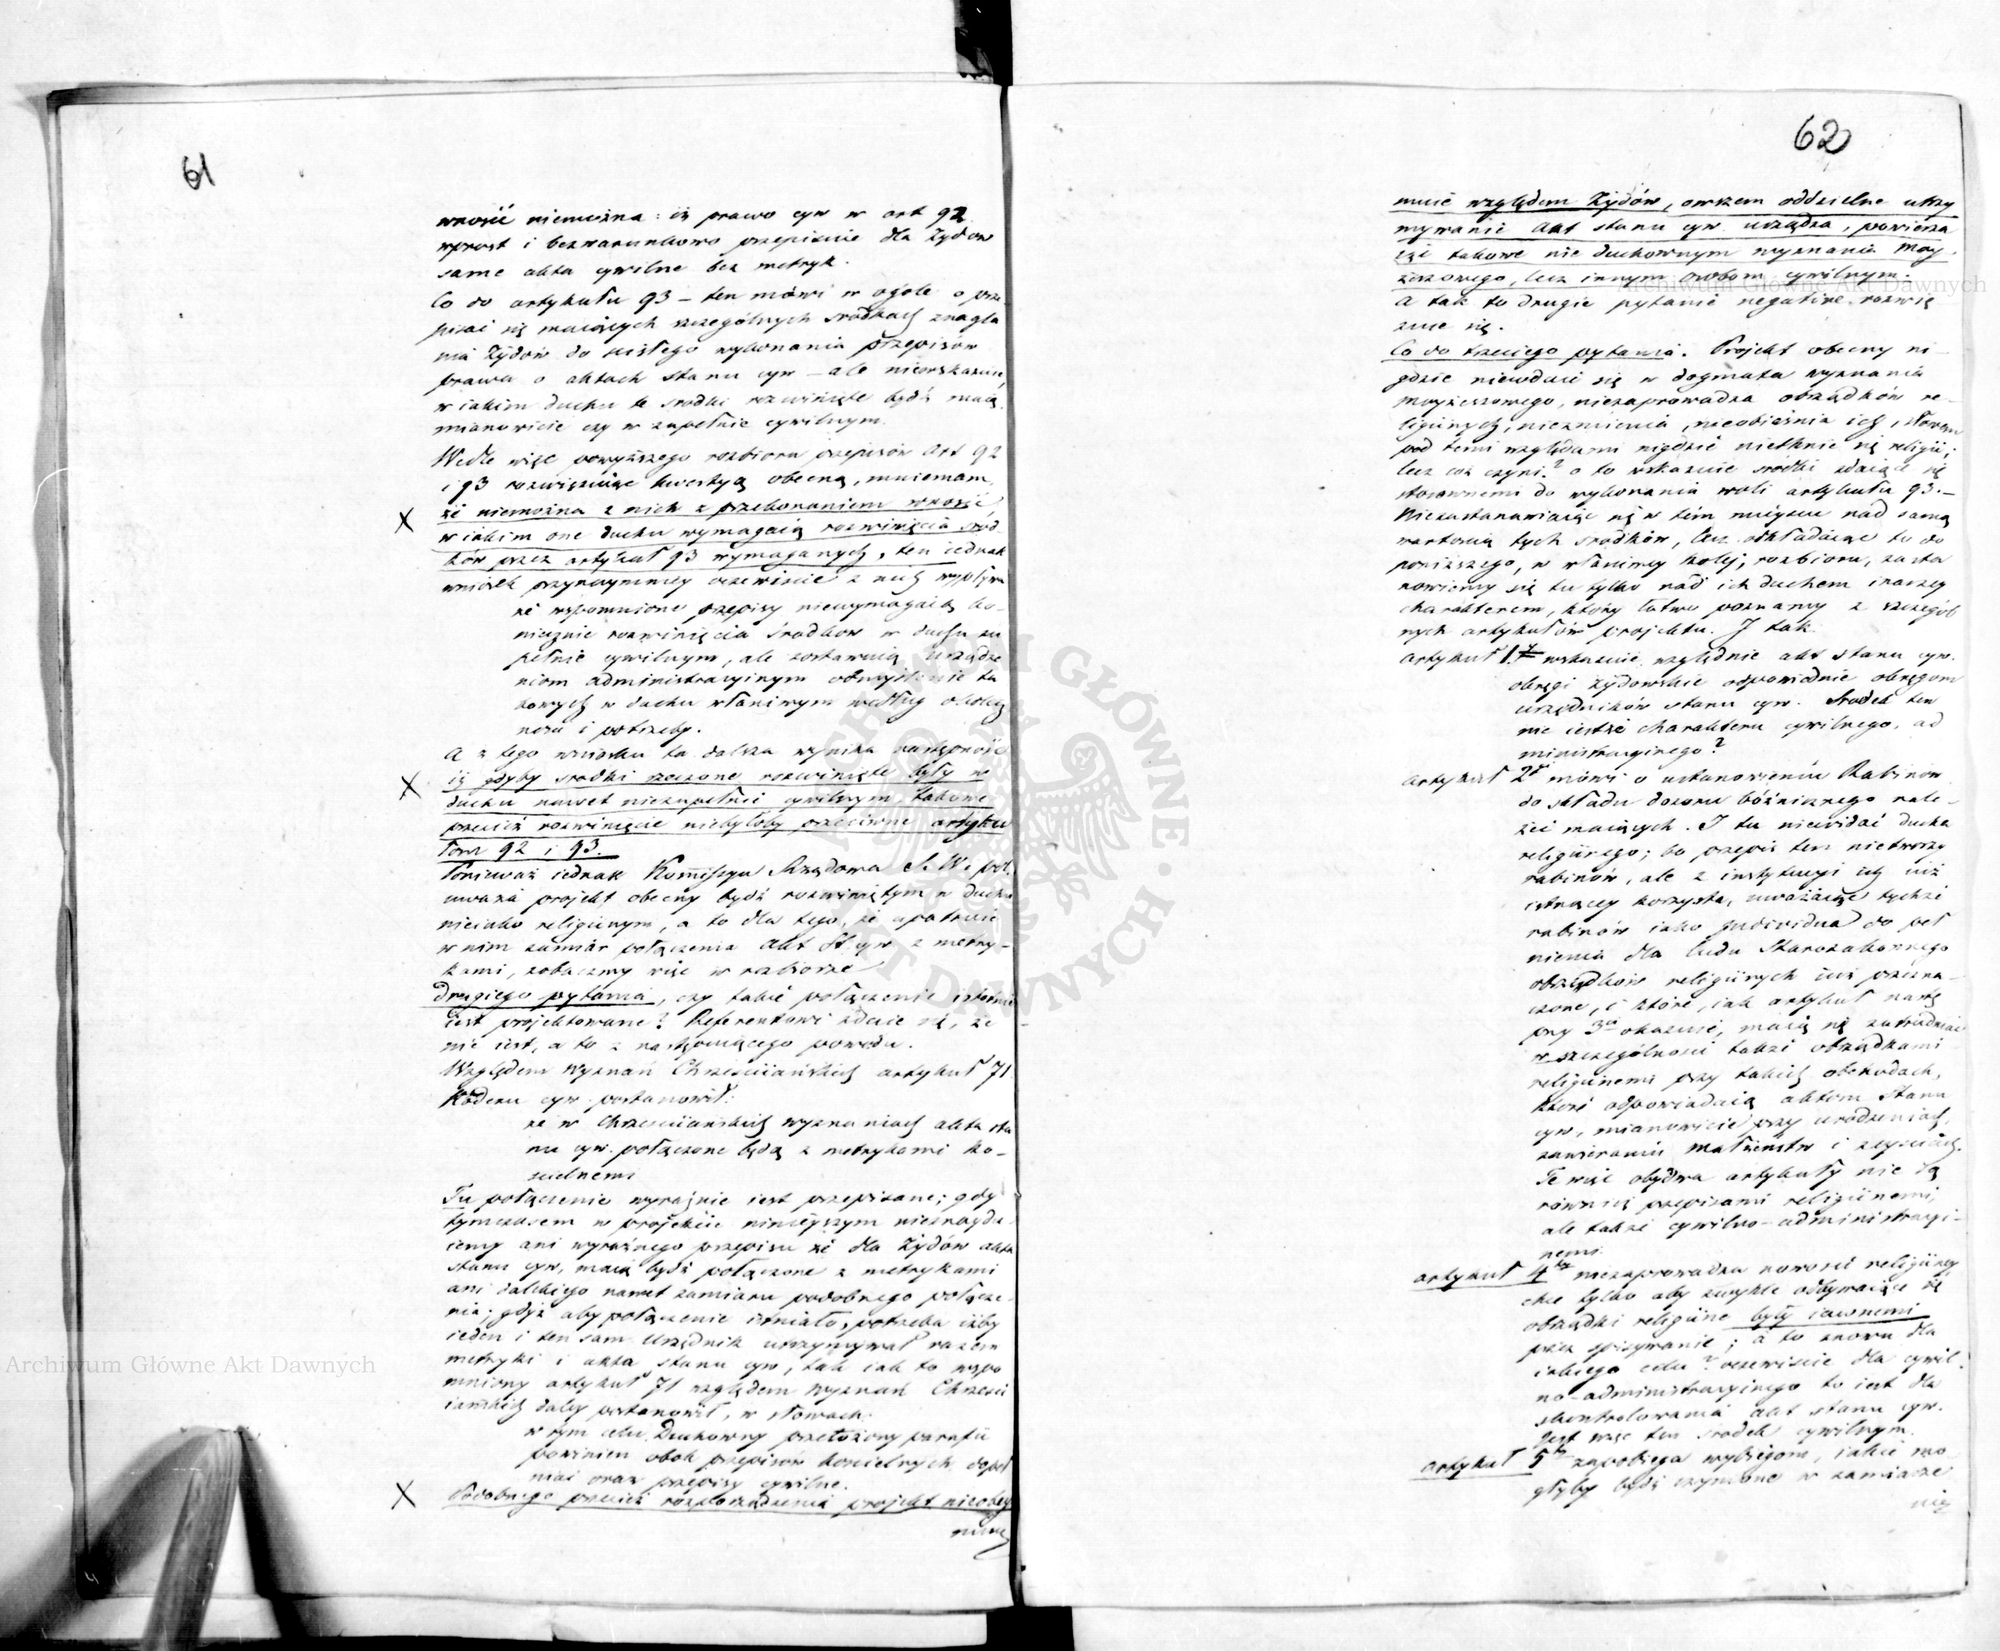 61
wnosić niemożna: iż prawo cyw w art 92
wprost i bezwarunkowo przepisuie dla Żydów
same akta cywilne bez metryk.
Co do artykułu 93 – ten mówi w ogóle o prze-
pisać się maiących szczególnych środkach znagle
nia Żydów do ścisłego wykonania przepisów
prawa o aktach stanu cyw – ale niewskazuie,
w iakim duchu te środki rozwinięte bydź maią
mianowicie czy w zupełnie cywilnym.
Wedle więc powyższego rozbioru przepisów art 92
i 93 rozwiązuiąc kwestyą obecną, mniemam,
że niemożna z nich z przekonaniem wnosić,
w iakim one duchu wymagaią rozwinięcia środ-
ków przez artykuł 93 wymaganych, ten iednak
wniosek przynaymniey oczewiście z nich wypływa
że wspomnione przepisy niewymagaią ko-
niecznie rozwinięcia środków w duchu zu
pełnie cywilnym, ale zostawuią urządze
niom administracyinym obmyślenie ta
kowych w duchu właściwym według okolicz
ności i potrzeby.
A z tego wniosku ta dalsza wynika następność
iż gdyby środki rzeczone rozwinięte były w
duchu nawet niezupełnie cywilnym, takowe
przecież rozwinięcie niebyłoby przeciwne artyku
łom 92 i 93.
Ponieważ iednak Kommissya Rządowa S. W. i pol.
uważa projekt obecny bydź rozwiniętym w duchu
nieiako religiinym, a to dla tego, że upatruie
w nim zamiar połączenia Akt St. cyw z metry-
kami, zobaczmy więc w rozbiorze
drugiego pytania, czy takie połączenie istotnie
iest projektowane? Referentowi zdaie się, że
nie iest, a to z następuiącego powodu.
Względem wyznań Chrześciiańskich artykuł 71
Kodexu cyw postanowił:
że w Chrześciiańskich wyznaniach akta sta
nu cyw. połączone będą z metrykami ko-
ścielnemi
Tu połączenie wyraźnie iest przepisane; gdy
tymczasem w projekcie ninieyszym nieznaydu
iemy ani wyraźnego przepisu że dla Żydów akta
stanu cyw, maią bydź połączone z metrykami
ani dalekiego nawet zamiaru podobnego połącze-
nia; gdyż aby połączenie istniało, potrzeba iżby
ieden i ten sam Urzędnik utrzymywał razem
metryki i akta stanu cyw, tak iak to wspo
mniony artykuł 71 względem wyznań Chrześci
iańskich daley postanowił, w słowach:
w tym celu Duchowny przełożony parafii
powinien obok przepisów kościelnych dopeł
niać oraz przepisy cywilne.
Podobnego przecież rozporządzenia projekt nieobey
muie
62
muie względem Żydów, owszem oddzielne utrzy
mywanie akt stanu cyw urządza, powierza
iąc takowe nie duchownym wyznania May
żeszowego, lecz innym osobom cywilnym.
A tak to drugie pytanie negative rozwią
zuie się.
Co do trzeciego pytania. Projekt obecny ni-
gdzie niewdaie się w dogmata wyznania
mayżeszowego, niezaprowadza obrządków re-
ligiinych, niezmienia, nieobiaśnia ich, słowem
pod temi względami nigdzie nietknie się religii;
lecz coż czyni? o to wskazuie środki zdaiące się
stosownemi do wykonania woli artykułu 93. –
Niezastanawiaiąc się w tém mieyscu nad samą
wartością tych środków, lecz odkładaiąc to do
poniższego, w właściwey kolei, rozbioru, zasta
nowiemy się tu tylko nad ich duchem inaczey
charakterem, który łatwo poznamy z szczegól
nych artykułów projektu. I tak
Artykuł 1y wskazuie względnie akt stanu cyw.
okręgi Żydowskie odpowiednie okręgom
urzędników stanu cyw. Środek ten
nie iestże charakteru cywilnego, ad
ministracyinego?
Artykuł 2i mówi o ustanowieniu Rabinów
do składu dozoru bóżnicznego nale-
żeć maiących. I tu niewidać ducha
religiinego; bo przepis ten nietworzy
rabinów, ale z instytucyi ich iuż
istnącey korzysta, uważaiąc tychże
rabinów iako Individua do peł
nienia dla ludu Starozakonnego
obrządków religiinych iuż przezna-
czone, i które, iak artykuł nastę
pny 3ci okazuie, maią się zatrudniać
w szczególności także obrządkami
religiinemi przy takich obchodach,
które odpowiadaią aktom Stanu
cyw, mianowicie przy urodzeniach,
zawieraniu małżeństw i zeyściach.
Te więc obydwa artykuły nie są
również przepisami religiinemi,
ale także cywilno-administracyi-
nemi.
Artykuł 4ty niezaprowadza nowości religiiney
chce tylko aby zwykle odbywaiące się
obrządki religiine były iawnemi
przez spisywanie; a to znowu dla
iakiego celu? oczewiście dla cywil-
no-administracyinego to iest dla
skontrolowania akt stanu cyw.
Jest więc ten środek cywilnym.
Artykuł 5ty zapobiega wybiegom, iakie mo
głyby bydź czynione w zamiarze
Archiwum Główne Akt Dawnych
Archiwum Główne Akt Dawnych
ARCHIWUM GŁÓWNE AKT DAWNYCH